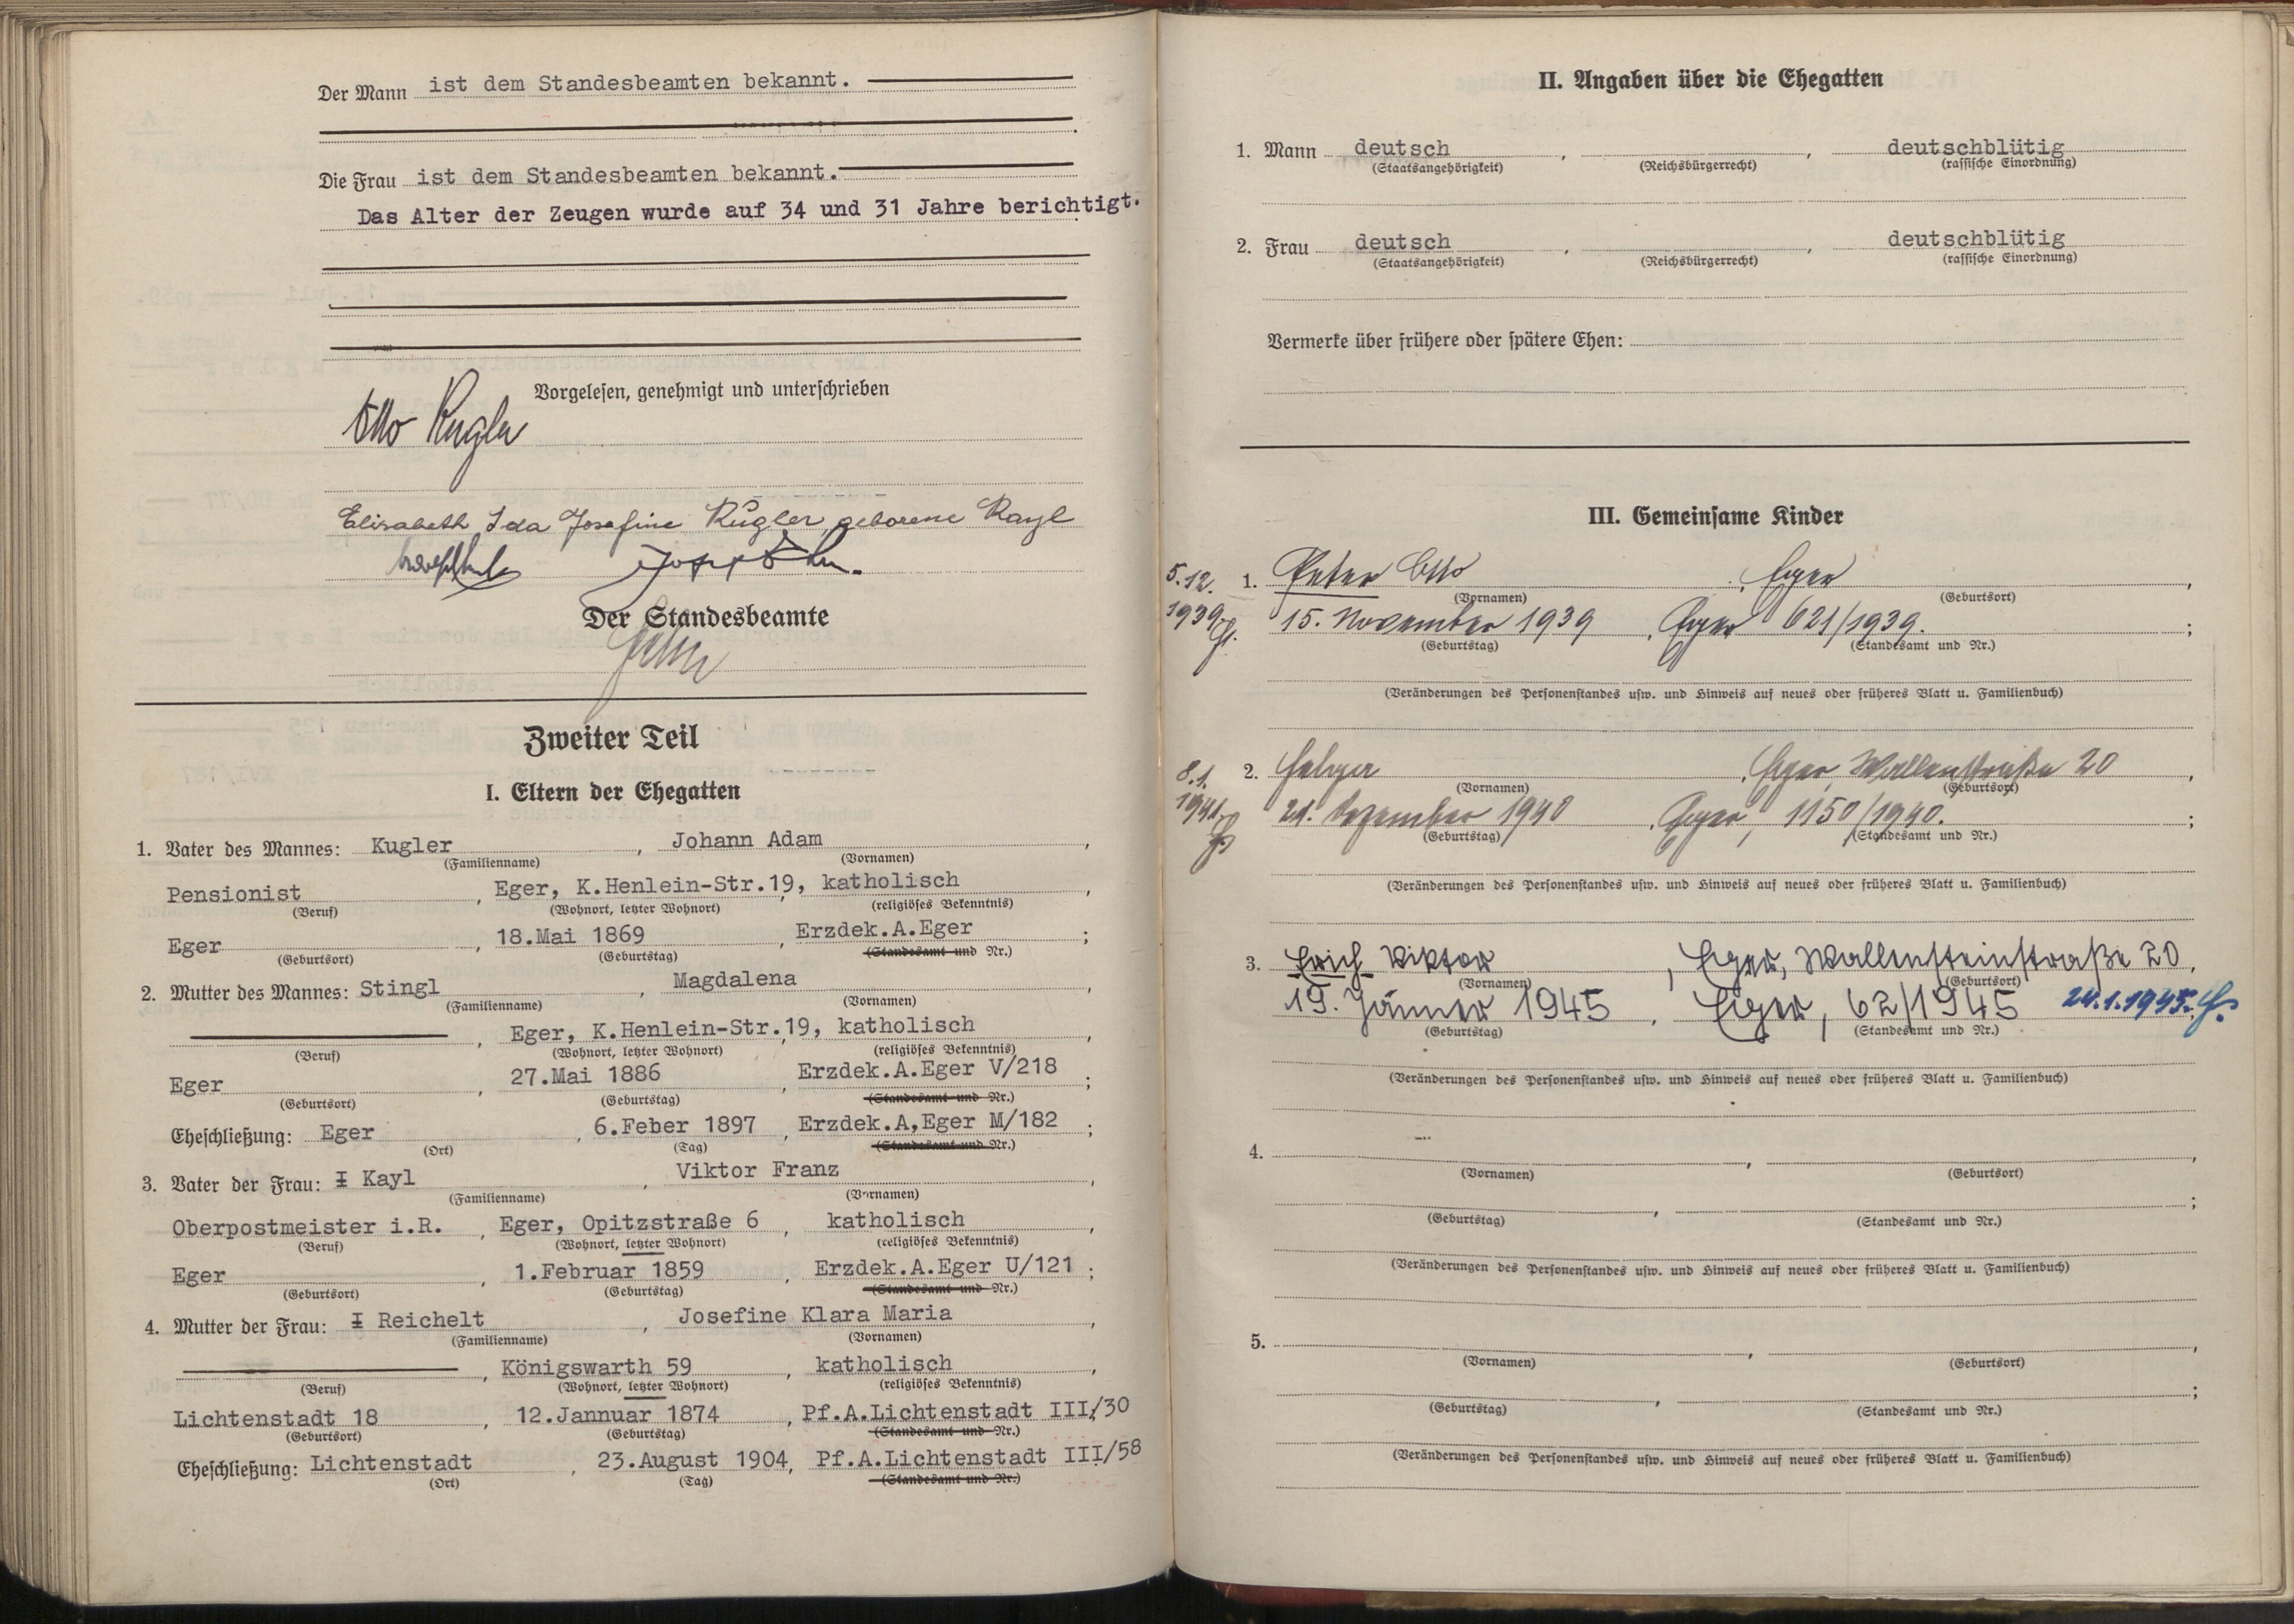 Der Mann ist dem Standesbeamten bekannt.
Die Frau ist dem Standesbeamten bekannt.
Das Alter der Zeugen wurde auf 34 und 31 Jahre berichtigt.
Vorgelesen, genehmigt und unterschrieben
Otto Kugler
Elisabeth Ida Josefine Kugler geborene Kayl
Josef
Der Standesbeamte
Zweiter Teil
I. Eltern der Ehegatten
1. Vater des Mannes: Kugler, Johann Adam,
(Familienname) (Vornamen)
Pensionist, Eger, K.Henlein-Str.19, katholisch,
(Beruf) (Wohnort, letzter Wohnort) (religiöses Bekenntnis)
Eger, 18.Mai 1869, Erzdek.A.Eger;
(Geburtsort) (Geburtstag) (Standesamt und Nr.)
2. Mutter des Mannes: Stingl, Magdalena,
(Familienname) (Vornamen)
, Eger, K.Henlein-Str.19, katholisch,
(Beruf) (Wohnort, letzter Wohnort) (religiöses Bekenntnis)
Eger, 27.Mai 1886, Erzdek.A.Eger V/218;
(Geburtsort) (Geburtstag) (Standesamt und Nr.)
Eheschließung: Eger, 6.Feber 1897, Erzdek.A,Eger M/182;
(Ort) (Tag) (Standesamt und Nr.)
3. Vater der Frau: I Kayl, Viktor Franz,
(Familienname) (Vornamen)
Oberpostmeister i.R., Eger, Opitzstraße 6, katholisch,
(Beruf) (Wohnort, letzter Wohnort) (religiöses Bekenntnis)
Eger, 1.Februar 1859, Erzdek.A.Eger U/121;
(Geburtsort) (Geburtstag) (Standesamt und Nr.)
4. Mutter der Frau: I Reichelt, Josefine Klara Maria,
(Familienname) (Vornamen)
, Königswarth 59, katholisch,
(Beruf) (Wohnort, letzter Wohnort) (religiöses Bekenntnis)
Lichtenstadt 18, 12.Jannuar 1874, Pf.A.Lichtenstadt III/30
(Geburtsort) (Geburtstag) (Standesamt und Nr.)
Eheschließung: Lichtenstadt, 23.August 1904, Pf.A.Lichtenstadt III/58
(Ort) (Tag) (Standesamt und Nr.)
II. Angaben über die Ehegatten
1. Mann deutsch, , deutschblütig
(Staatsangehörigkeit) (Reichsbürgerrecht) (rassische Einordnung)
2. Frau deutsch, , deutschblütig
(Staatsangehörigkeit) (Reichsbürgerrecht) (rassische Einordnung)
Vermerke über frühere oder spätere Ehen:
III. Gemeinsame Kinder
5.12. 1. Peter Otto, Eger,
(Vornamen) (Geburtsort)
1939 15. November 1939, Eger 621/1939.;
(Geburtstag) (Standesamt und Nr.)
(Veränderungen des Personenstandes usw. und Hinweis auf neues oder früheres Blatt u. Familienbuch)
8.1. 2. Helga, Eger, Wallenstraße 20,
(Vornamen) (Geburtsort)
1941 21. Dezember 1940, Eger, 1150/1940.;
(Geburtstag) (Standesamt und Nr.)
(Veränderungen des Personenstandes usw. und Hinweis auf neues oder früheres Blatt u. Familienbuch)
3. Erich Viktor, Eger, Wallensteinstraße 20,
(Vornamen) (Geburtsort)
19. Jänner 1945, Eger, 62/1945 24.1.1945.
(Geburtstag) (Standesamt und Nr.)
(Veränderungen des Personenstandes usw. und Hinweis auf neues oder früheres Blatt u. Familienbuch)
4. , ,
(Vornamen) (Geburtsort)
, ;
(Geburtstag) (Standesamt und Nr.)
(Veränderungen des Personenstandes usw. und Hinweis auf neues oder früheres Blatt u. Familienbuch)
5. , ,
(Vornamen) (Geburtsort)
, ;
(Geburtstag) (Standesamt und Nr.)
(Veränderungen des Personenstandes usw. und Hinweis auf neues oder früheres Blatt u. Familienbuch)